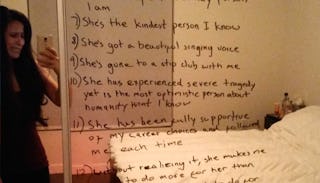 I am
7) She's the kindest person I know
8) She's got a beautiful singing voice
9) She's gone to a strip club with me
10) She has experienced severe tragedy
yet is the most optimistic person about
humanity that I know
11) She has been fully supportive
of my career choices and followed
me each time
12) Without realizing it, she makes me
to do more for her than